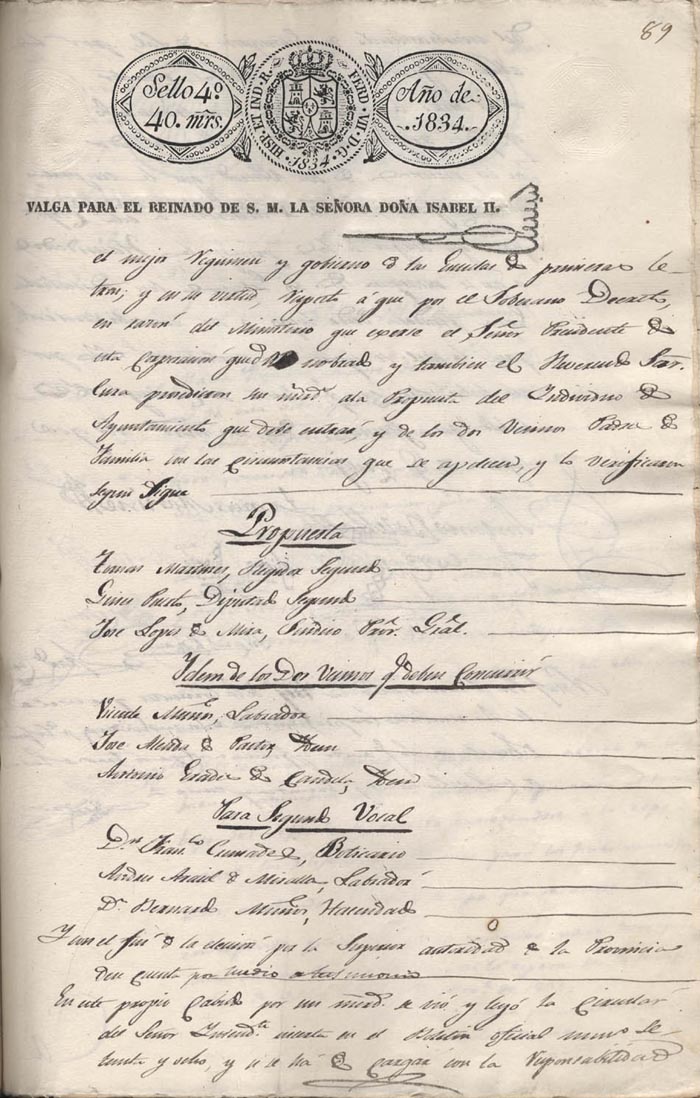 89
Sello 4º
40. mrs.
HISP. ET IND. R. FERD. VII. D. G. 1834.
Año de
1834.
VALGA PARA EL REINADO DE S. M. LA SEÑORA DOÑA ISABEL II.
el mejor Regimen y gobierno de las Escuelas de primeras le-
tras; y en su virtud Respeto a que por el Soberano Decreto,
en razon del Ministerio que exerse el Señor Presidente de
esta Corporacion y tambien el Reverendo Sor.
Cura procedieron sus mrds. a la Propuesta del Individuo de
Ayuntamiento que debe entrar, y de los dos Vecinos Padres de
Familia con las Circunstancias que se apetecen, y lo verificaron
segun Sigue
Propuesta
Tomas Martines, Regidor Segundo
Gines Puerto, Diputado Segundo
Jose Lopes de Mira, Sindico Pror. Gral.
Idem de los Dos Vecinos q. deben Concurrir
Vicente Muños, Labrador
Jose de Pastor Idem
Antonio de Candela, Idem
Para Segundo Vocal
Dn. Franco. Boticario
Andres de Miralla, Labrador
Dn. Bernardo Muños, Hacendado
Y con el fin de la eleccion por la Superior autoridad de la Provincia
den cuenta por medio
En este propio Cabildo por sus mrds. se vió y leyó la Circular
del Señor Intendte. inserta en el Boletin oficial numo. Se
tenta y ocho, y se ha de cargar con la Responsabilidad